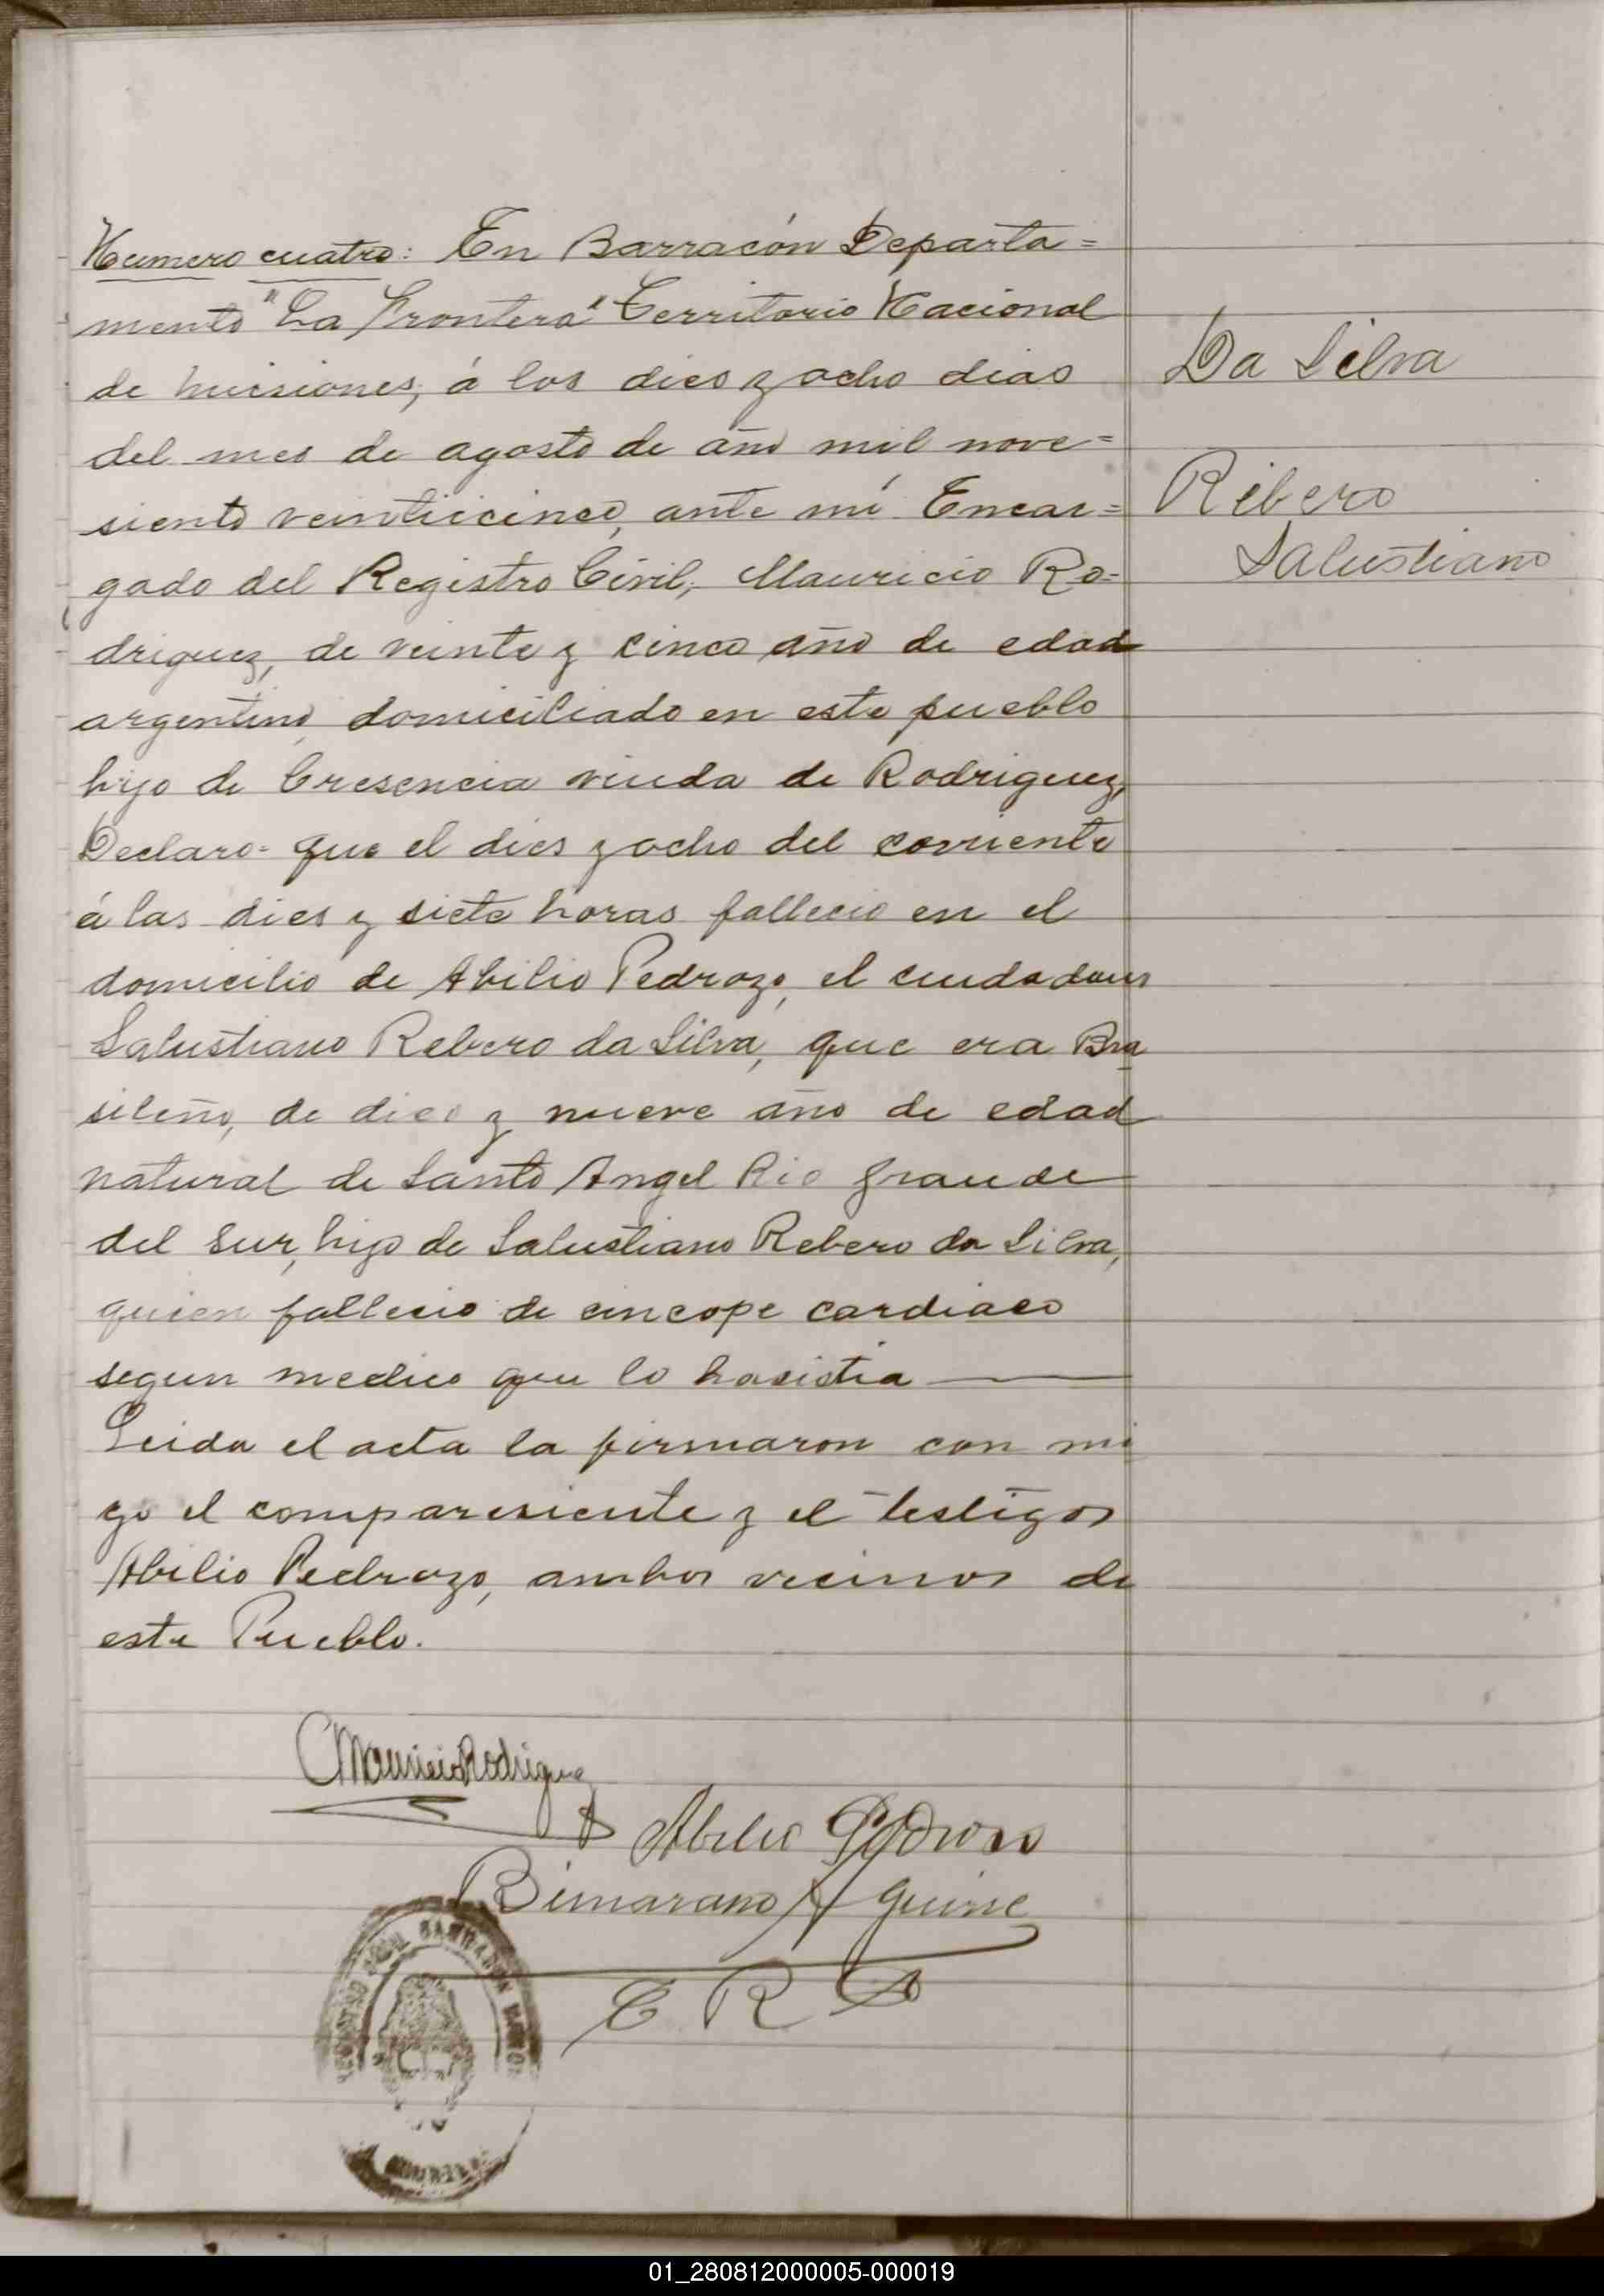 Numero cuatro: En Barracón Departa=
mento "La Frontera" Territorio Nacional
de Misiones, á los dies y ocho dias
Da Silva
del mes de agosto de año mil nove=
siento veinticinco, ante mí Encar=
Ribero
gado del Registro Civil, Mauricio Ro=
Salustiano
driguez, de veinte y cinco año de edad
argentino, domiciliado en este pueblo
hijo de Cresencia viuda de Rodriguez,
Declaro= que el dies y ocho del corriente
á las dies y siete horas fallecio en el
domicilio de Abilio Pedrozo, el ciudadano
Salustiano Rebero da Silva, que era Bra
sileño, de dies y nueve año de edad
natural de Santo Angel Rio Grande
del Sur, hijo de Salustiano Rebero da Silva,
quien fallecio de cincope cardiaco
segun medico que lo hasistia
Leida el acta la firmaron con mi
go el comparesiente y el testigos
Abilio Pedrozo, ambos vecinos de
este Pueblo.
Mauricio Rodriguez
Abilio Pedroso
Bimarano Aguirre
E R
REGISTRO CIVIL BARRACON
01_280812000005-000019